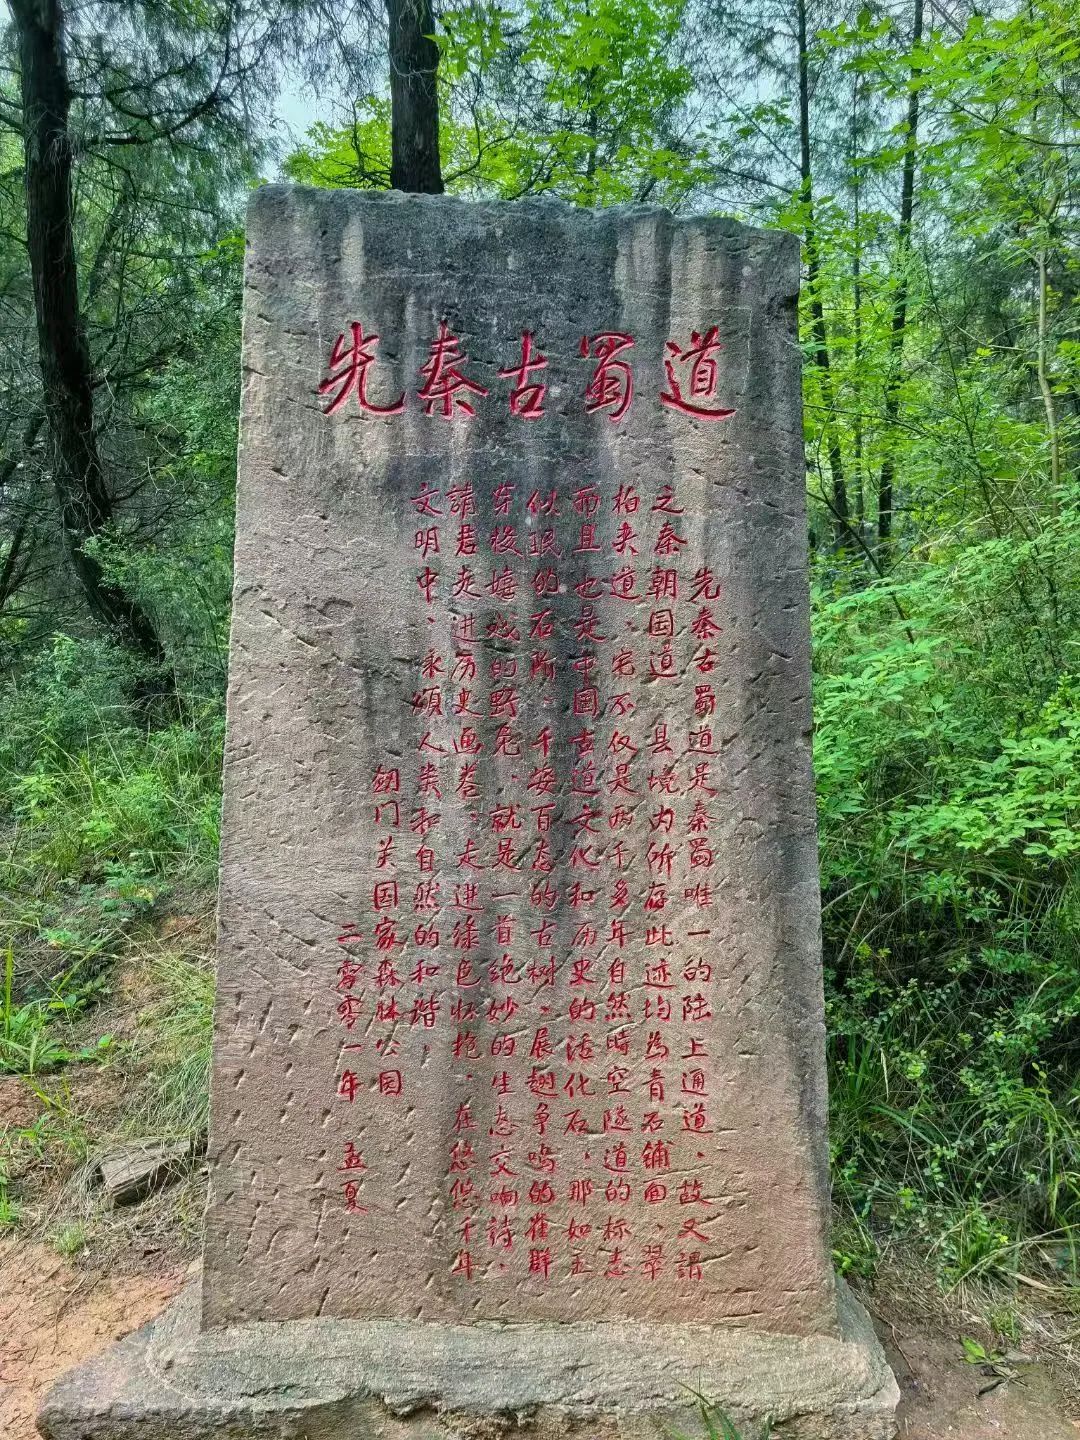 先秦古蜀道
先秦古蜀道是秦蜀唯一的陆上通道、故又謂
之秦朝国道 县境内所存此迹均為青石铺面、翠
柏夹道、它不仅是两千多年自然時空隧道的标志
而且也是中国古道文化和历史的活化石、那如玉
似珉的石阶、千姿百态的古树、展翅争鸣的雀群
穿梭嬉戏的野兔、就是一首绝妙的生态交响诗、
請君走进历史画卷、走进绿色怀抱、在悠悠千年
文明中、永頌人类和自然的和谐、
剑门关国家森林公园
二零零一年 孟夏